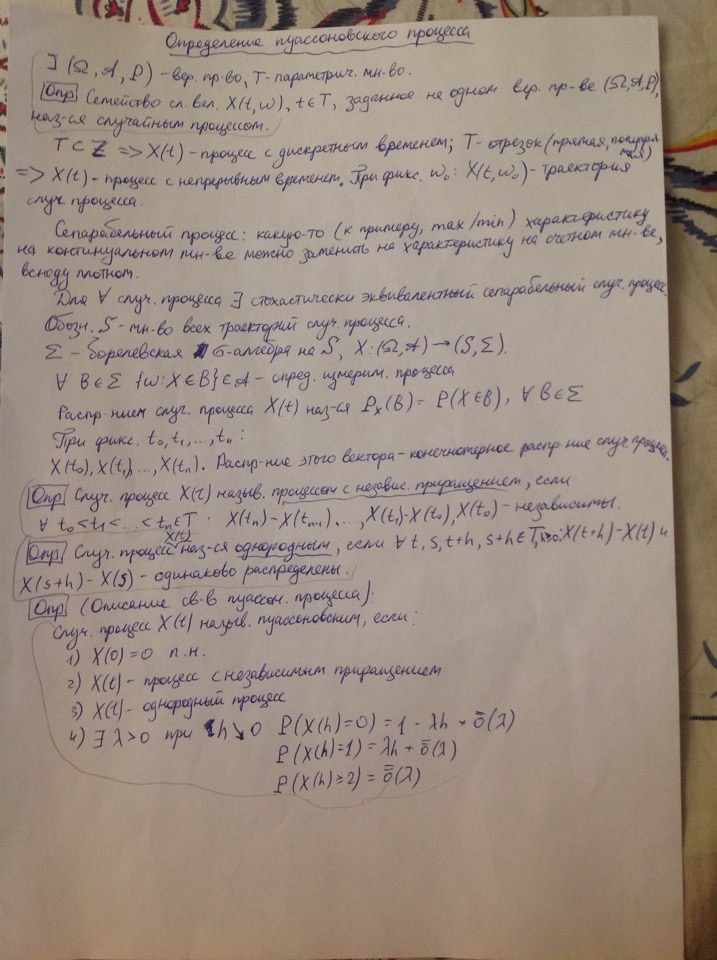 Определение пуассоновского процесса
∃ (Ω, A, P) – вер. пр-во, T-параметрич. мн-во.
Опр Семейство сл. вел. X(t,w), t∈T, заданное на одном вер. пр-ве (Ω,A,P),
наз-ся случайным процессом.
T⊂Z => X(t) – процесс с дискретным временем; T – отрезок (прямая, полупрямая)
=> X(t) – процесс с непрерывным временем. При фикс. w₀: X(t,w₀) – траектория
случ. процесса.
Сепарабельный процесс: какую-то (к примеру, max/min) характеристику
на континуальном мн-ве можно заменить на характеристику на счетном мн-ве,
всюду плотном.
Для ∀ случ. процесса ∃ стохастически эквивалентный сепарабельный случ. процесс.
Обозн. S – мн-во всех траекторий случ. процесса.
Σ – борелевская σ-алгебра на S, X: (Ω,A) → (S,Σ).
∀ B∈Σ {w: X∈B}∈A – опред. измерим. процесса
Распр-нием случ. процесса X(t) наз-ся Pₓ(B) = P(X∈B), ∀ B∈Σ
При фикс. t₀, t₁, ..., tₙ:
X(t₀), X(t₁), ..., X(tₙ). Распр-ние этого вектора – конечномерное распр-ние случ. процесса.
Опр Случ. процесс X(t) назыв. процессом с независ. приращением, если
∀ t₀<t₁<...<tₙ∈T X(tₙ)-X(tₙ₋₁), ..., X(t₁)-X(t₀), X(t₀) – независимы.
Опр Случ. процесс X(t) наз-ся однородным, если ∀ t, s, t+h, s+h∈T, : X(t+h)-X(t) и
X(s+h)-X(s) – одинаково распределены.
Опр (Описание св-в пуассон. процесса):
Случ. процесс X(t) назыв. пуассоновским, если:
1) X(0)=0 п.н.
2) X(t) – процесс с независимым приращением
3) X(t) – однородный процесс
4) ∃ λ>0 при h↘0 P(X(h)=0) = 1 - λh + ō(λ)
P(X(h)=1) = λh + ō(λ)
P(X(h)≥2) = ō(λ)